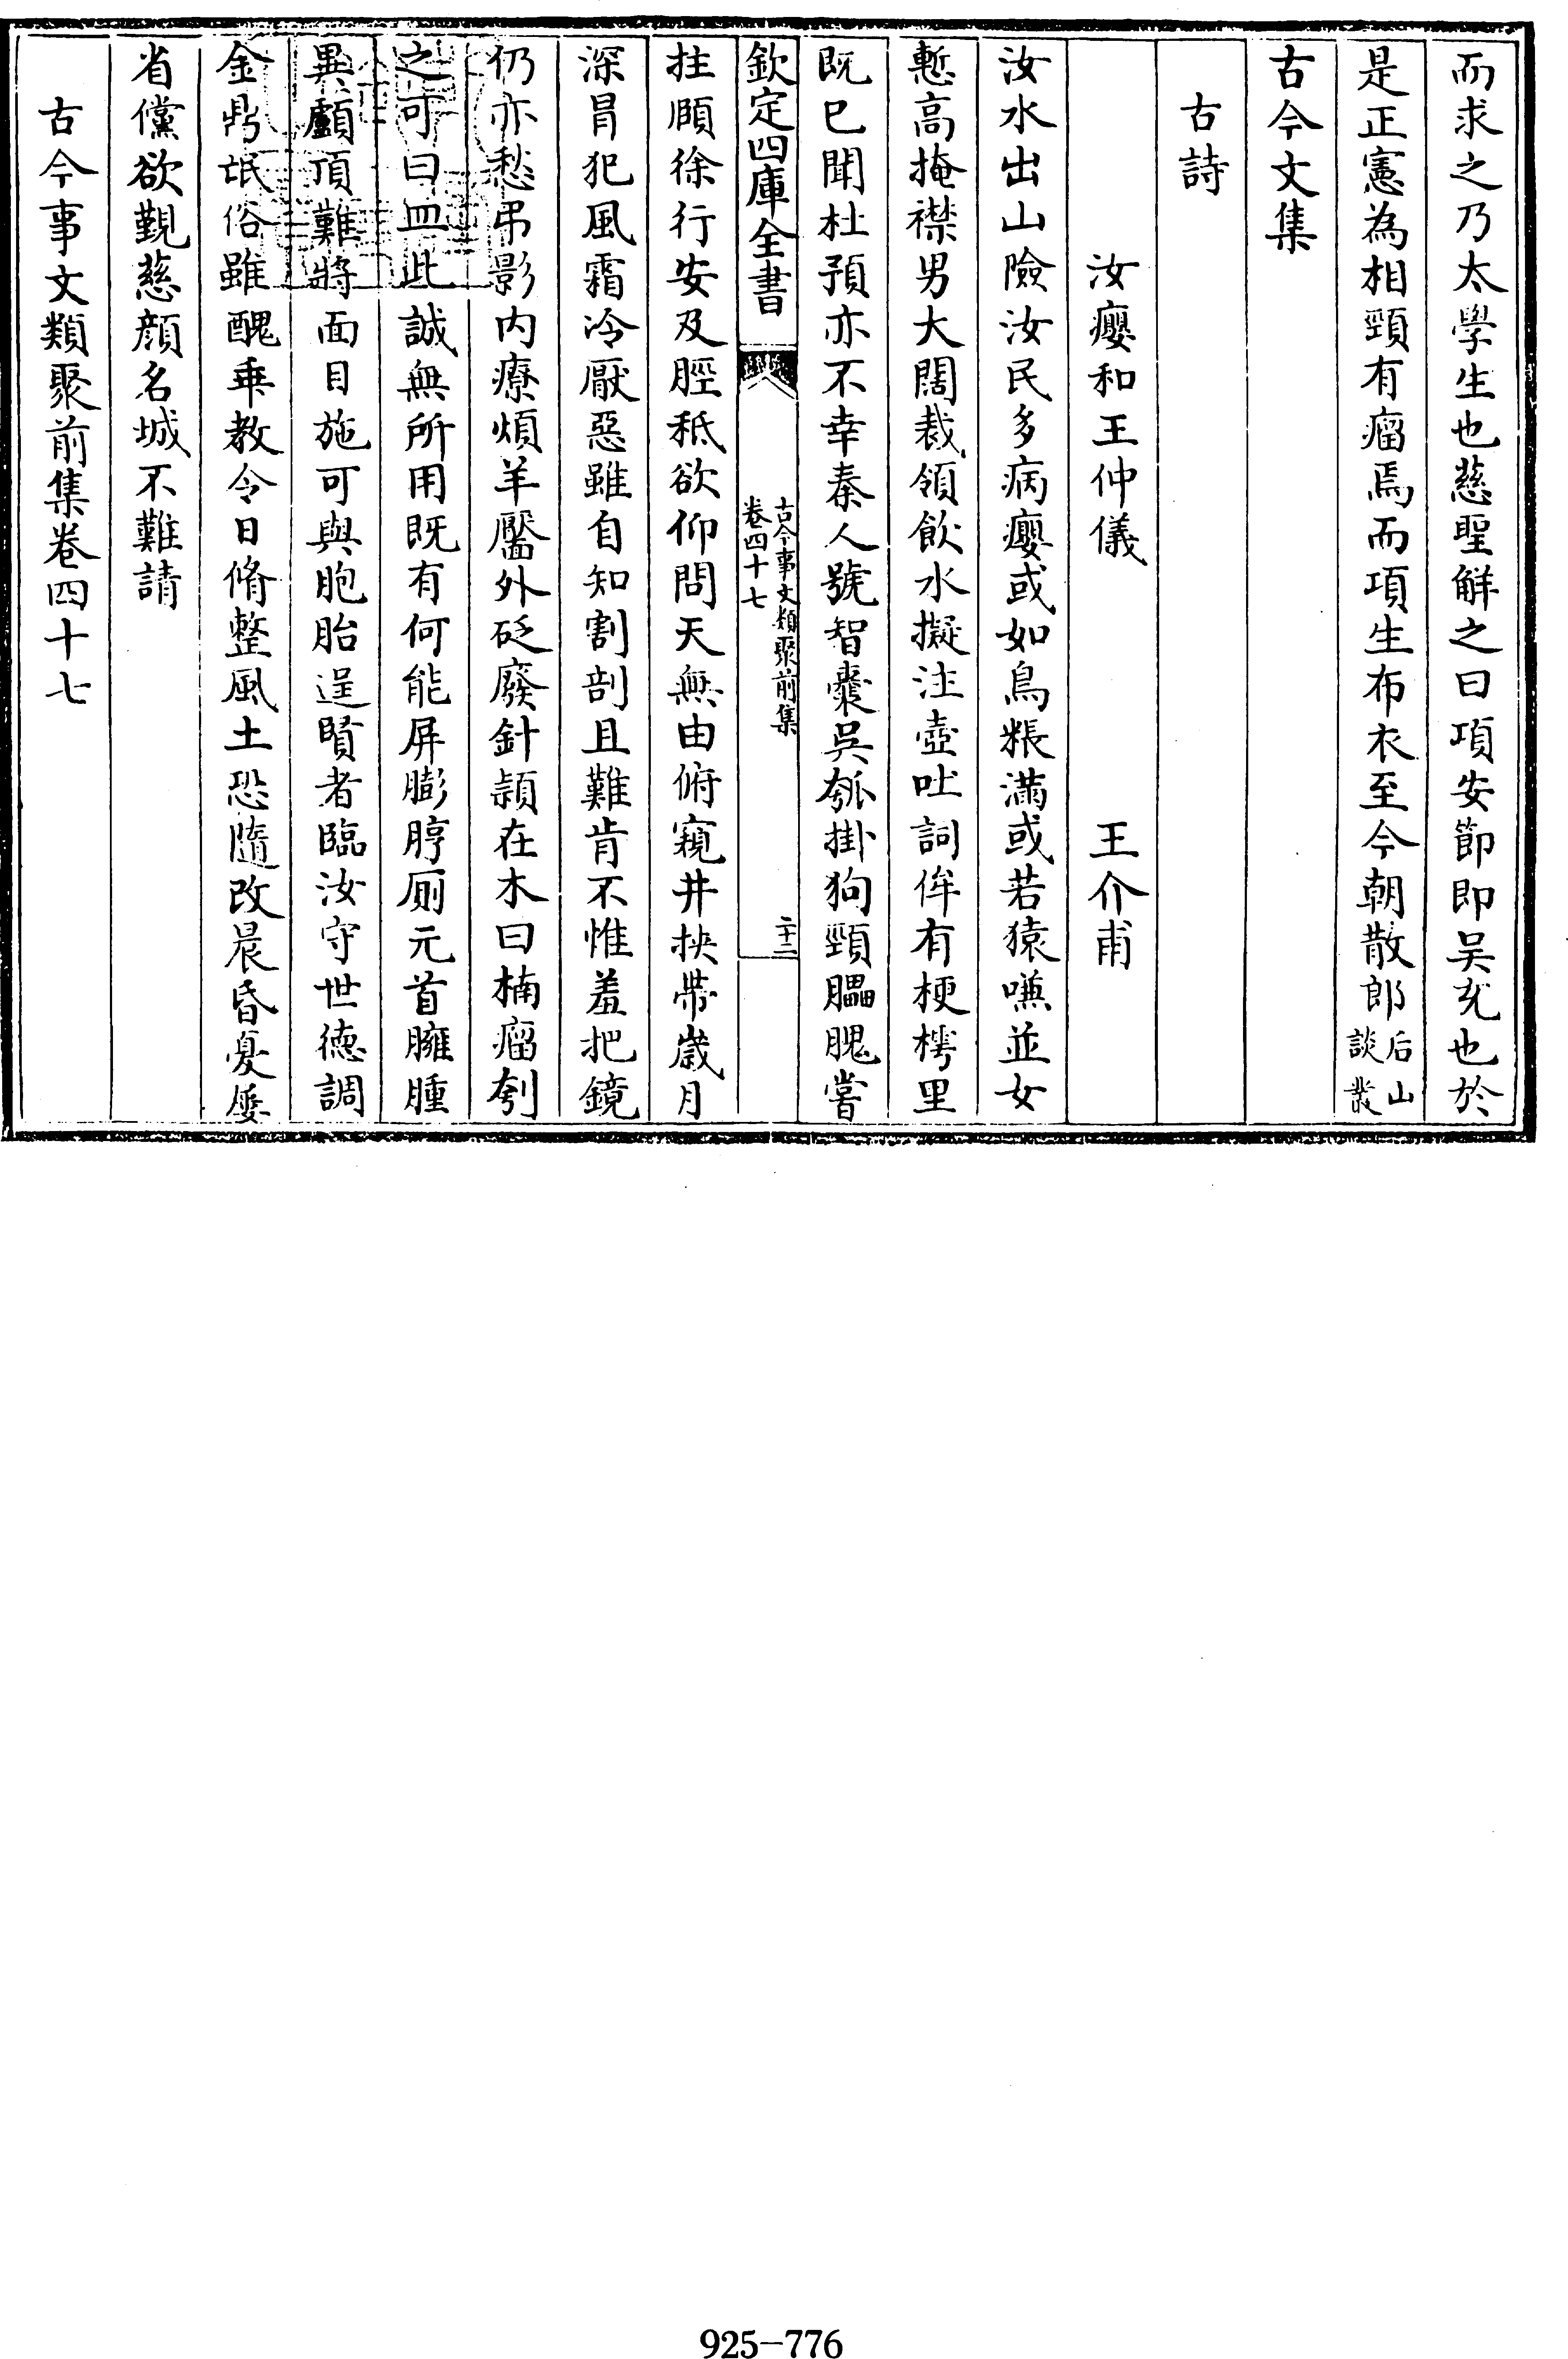 而求之乃太學生也慈聖解之曰項安節即吴充也於
是正憲為相頸有瘤焉而項生布衣至今朝散郎后山談叢
古今文集
古詩
汝癭和王仲儀　王介甫
汝水出山險汝民多病癭或如鳥粻滿或若猿嗛並女
慙高掩襟男大闊裁領飲水擬注壺吐詞侔有梗樗里
既已聞杜預亦不幸秦人號智囊吳瓠掛狗頸腽腲嘗
欽定四庫全書
古今事文類聚前集
卷四十七
二十二
拄頤徐行安及脛秪欲仰問天無由俯窺井挾帶歲月
深冒犯風霜冷厭惡雖自知割剖且難肯不惟羞把鏡
仍亦愁弔影内療煩羊靨外砭廢針頴在木曰楠瘤刳
之可曰皿此誠無所用既有何能屏膨脝厠元首臃腫
異顱頂難將面目施可與胞胎逞賢者臨汝守世德調
金鼎氓俗雖醜乖教令日脩整風土恐隨改晨昏憂屢
省儻欲觀慈顔名城不難請
古今事文類聚前集卷四十七
925-776